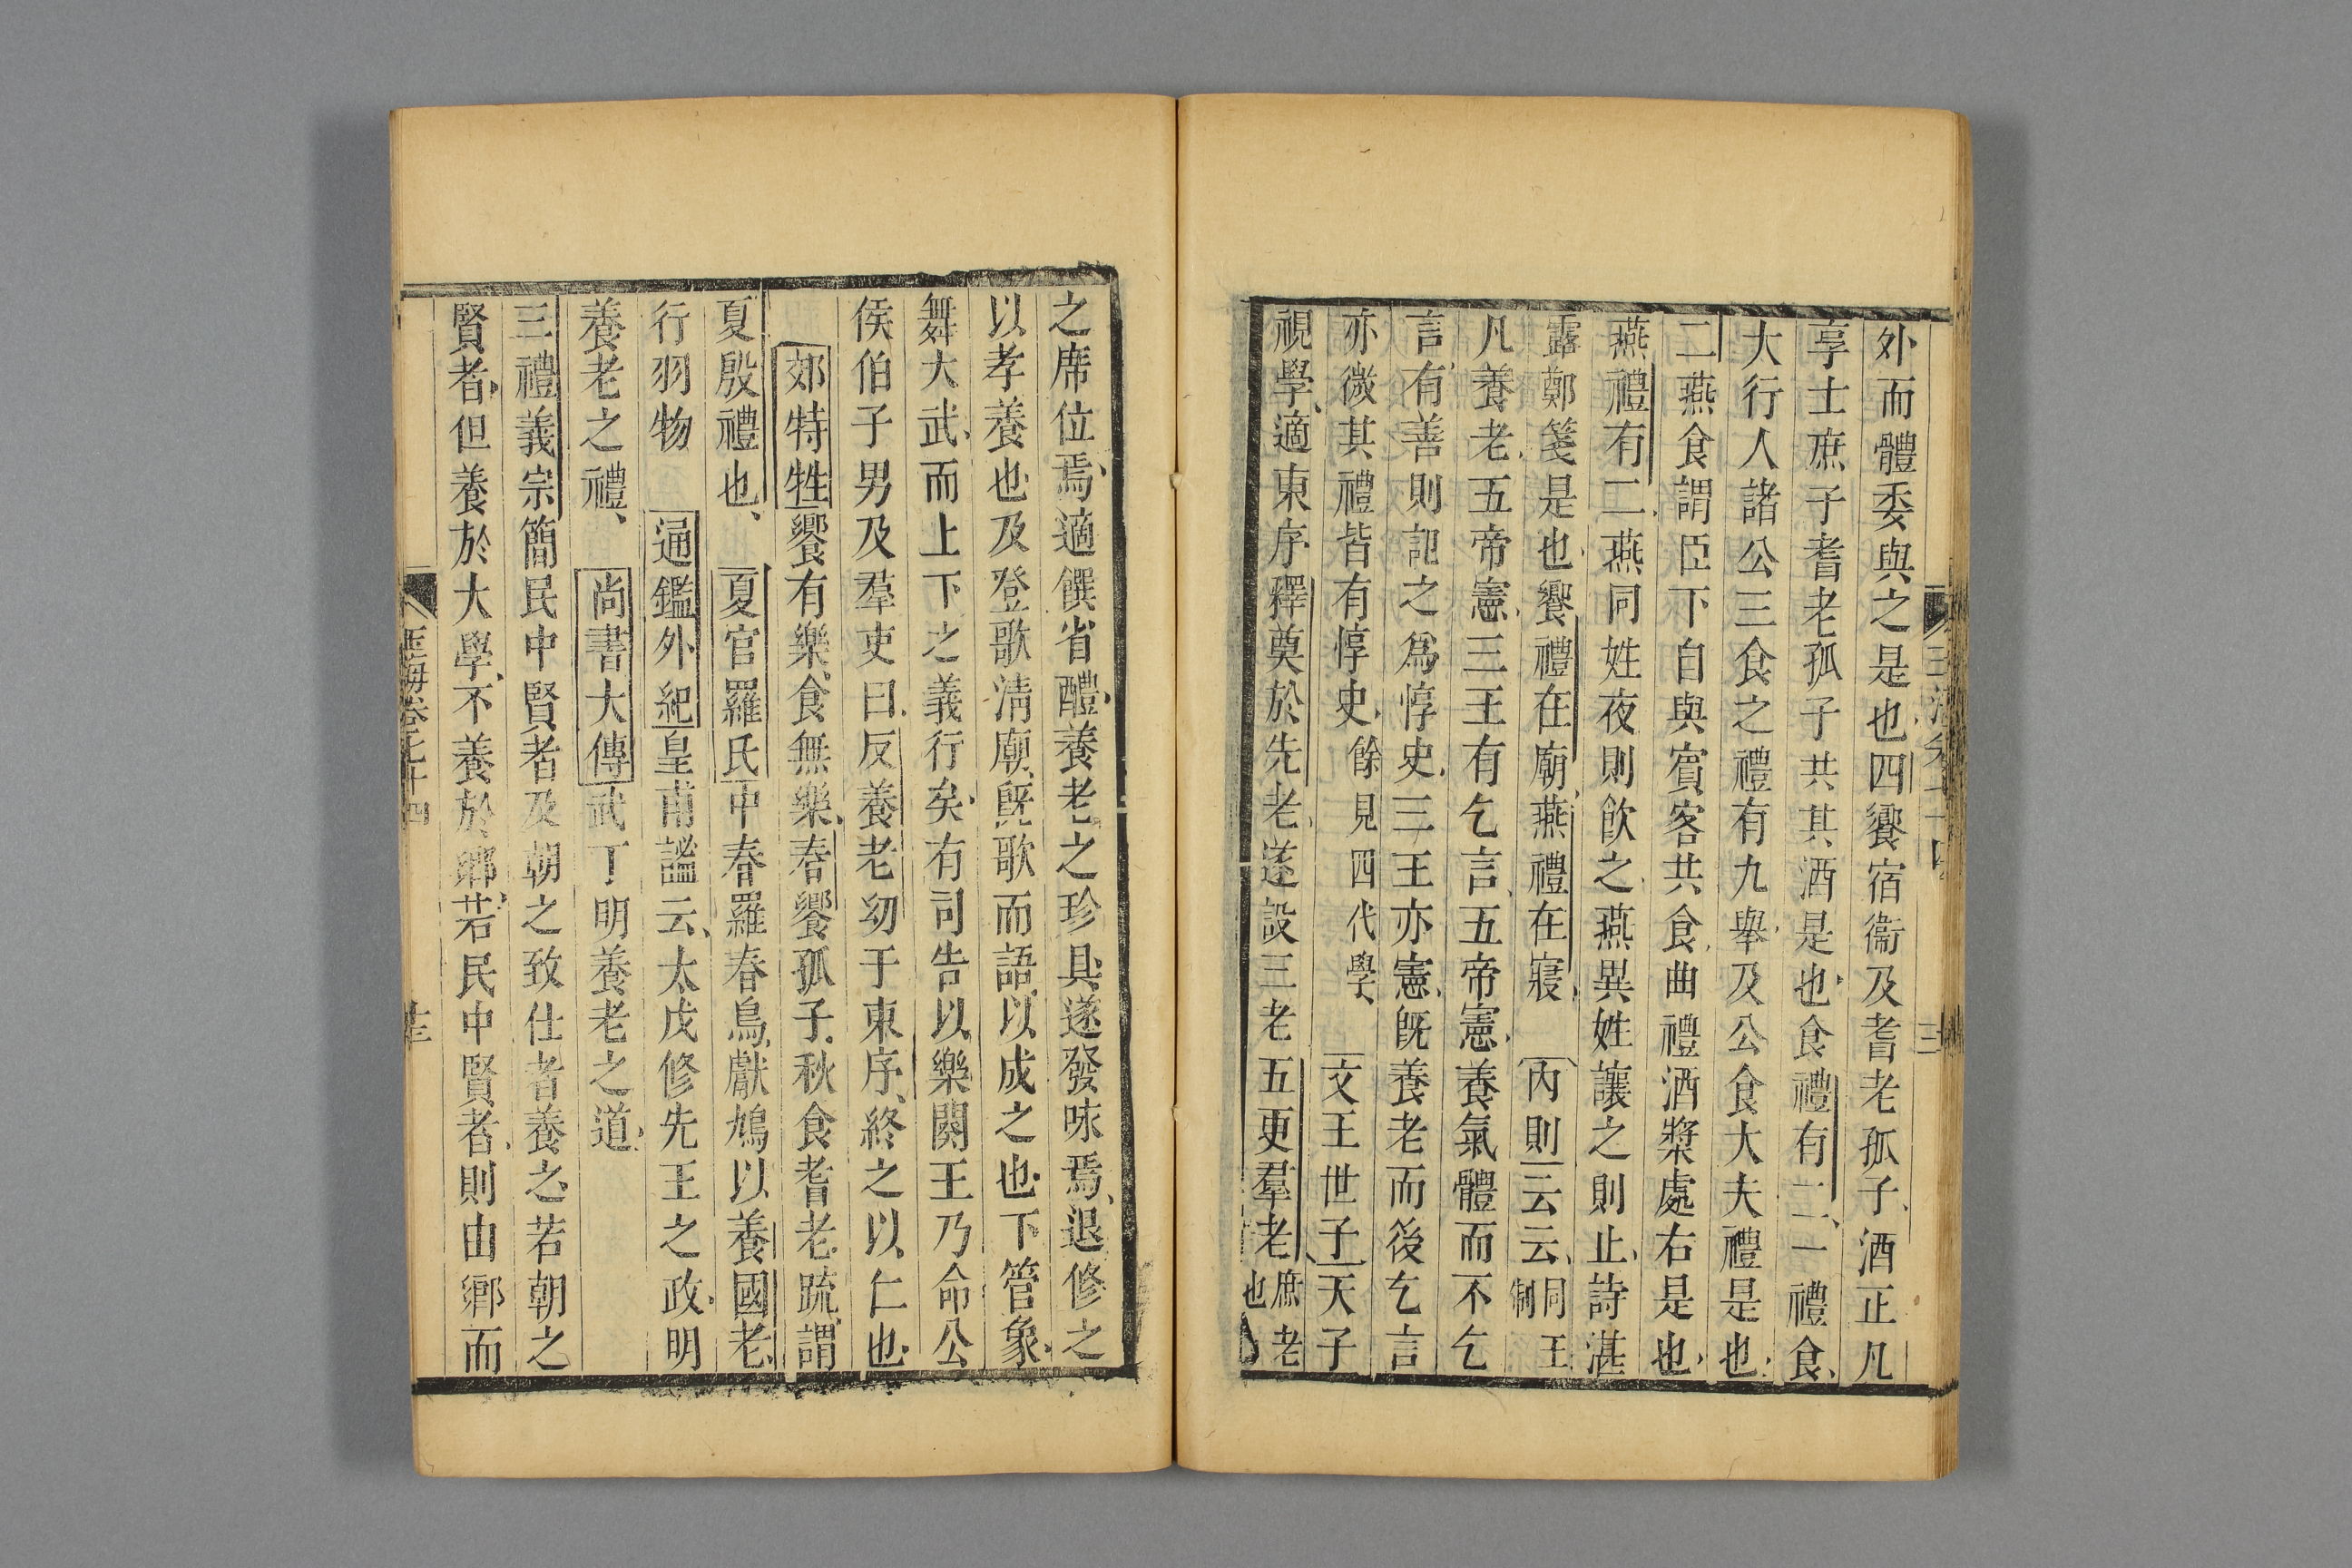 外而體委與之是也四饗宿衞及耆老孤子酒正凡
享士庶子耆老孤子共其酒是也食禮有二一禮食
大行人諸公三食之禮有九舉及公食大夫禮是也
二燕食謂臣下自與賓客共食曲禮酒漿處右是也
燕禮有二燕同姓夜則飲之燕異姓讓之則止詩湛
露鄭箋是也饗禮在廟燕禮在寢 內則云云同王制
凡養老五帝憲三王有乞言五帝憲養氣體而不乞
言有善則記之爲惇史三王亦憲旣養老而後乞言
亦微其禮皆有惇史餘見四代學 文王世子天子
視學適東序釋奠於先老遂設三老五更羣老庶老也
之席位焉適饌省醴養老之珍具遂發咏焉退修之
以孝養也及登歌淸廟旣歌而語以成之也下管象
舞大武而上下之義行矣有司告以樂闋王乃命公
侯伯子男及羣吏曰反養老幼于東序終之以仁也
郊特牲饗有樂食無樂春饗孤子秋食耆老䟽謂
夏殷禮也 夏官羅氏中春羅春鳥獻鳩以養國老
行羽物 通鑑外紀皇甫謐云太戊修先王之政明
養老之禮 尚書大傳武丁明養老之道
三禮義宗簡民中賢者及朝之致仕者養之若朝之
賢者但養於大學不養於鄉若民中賢者則由鄉而
玉海卷七十四